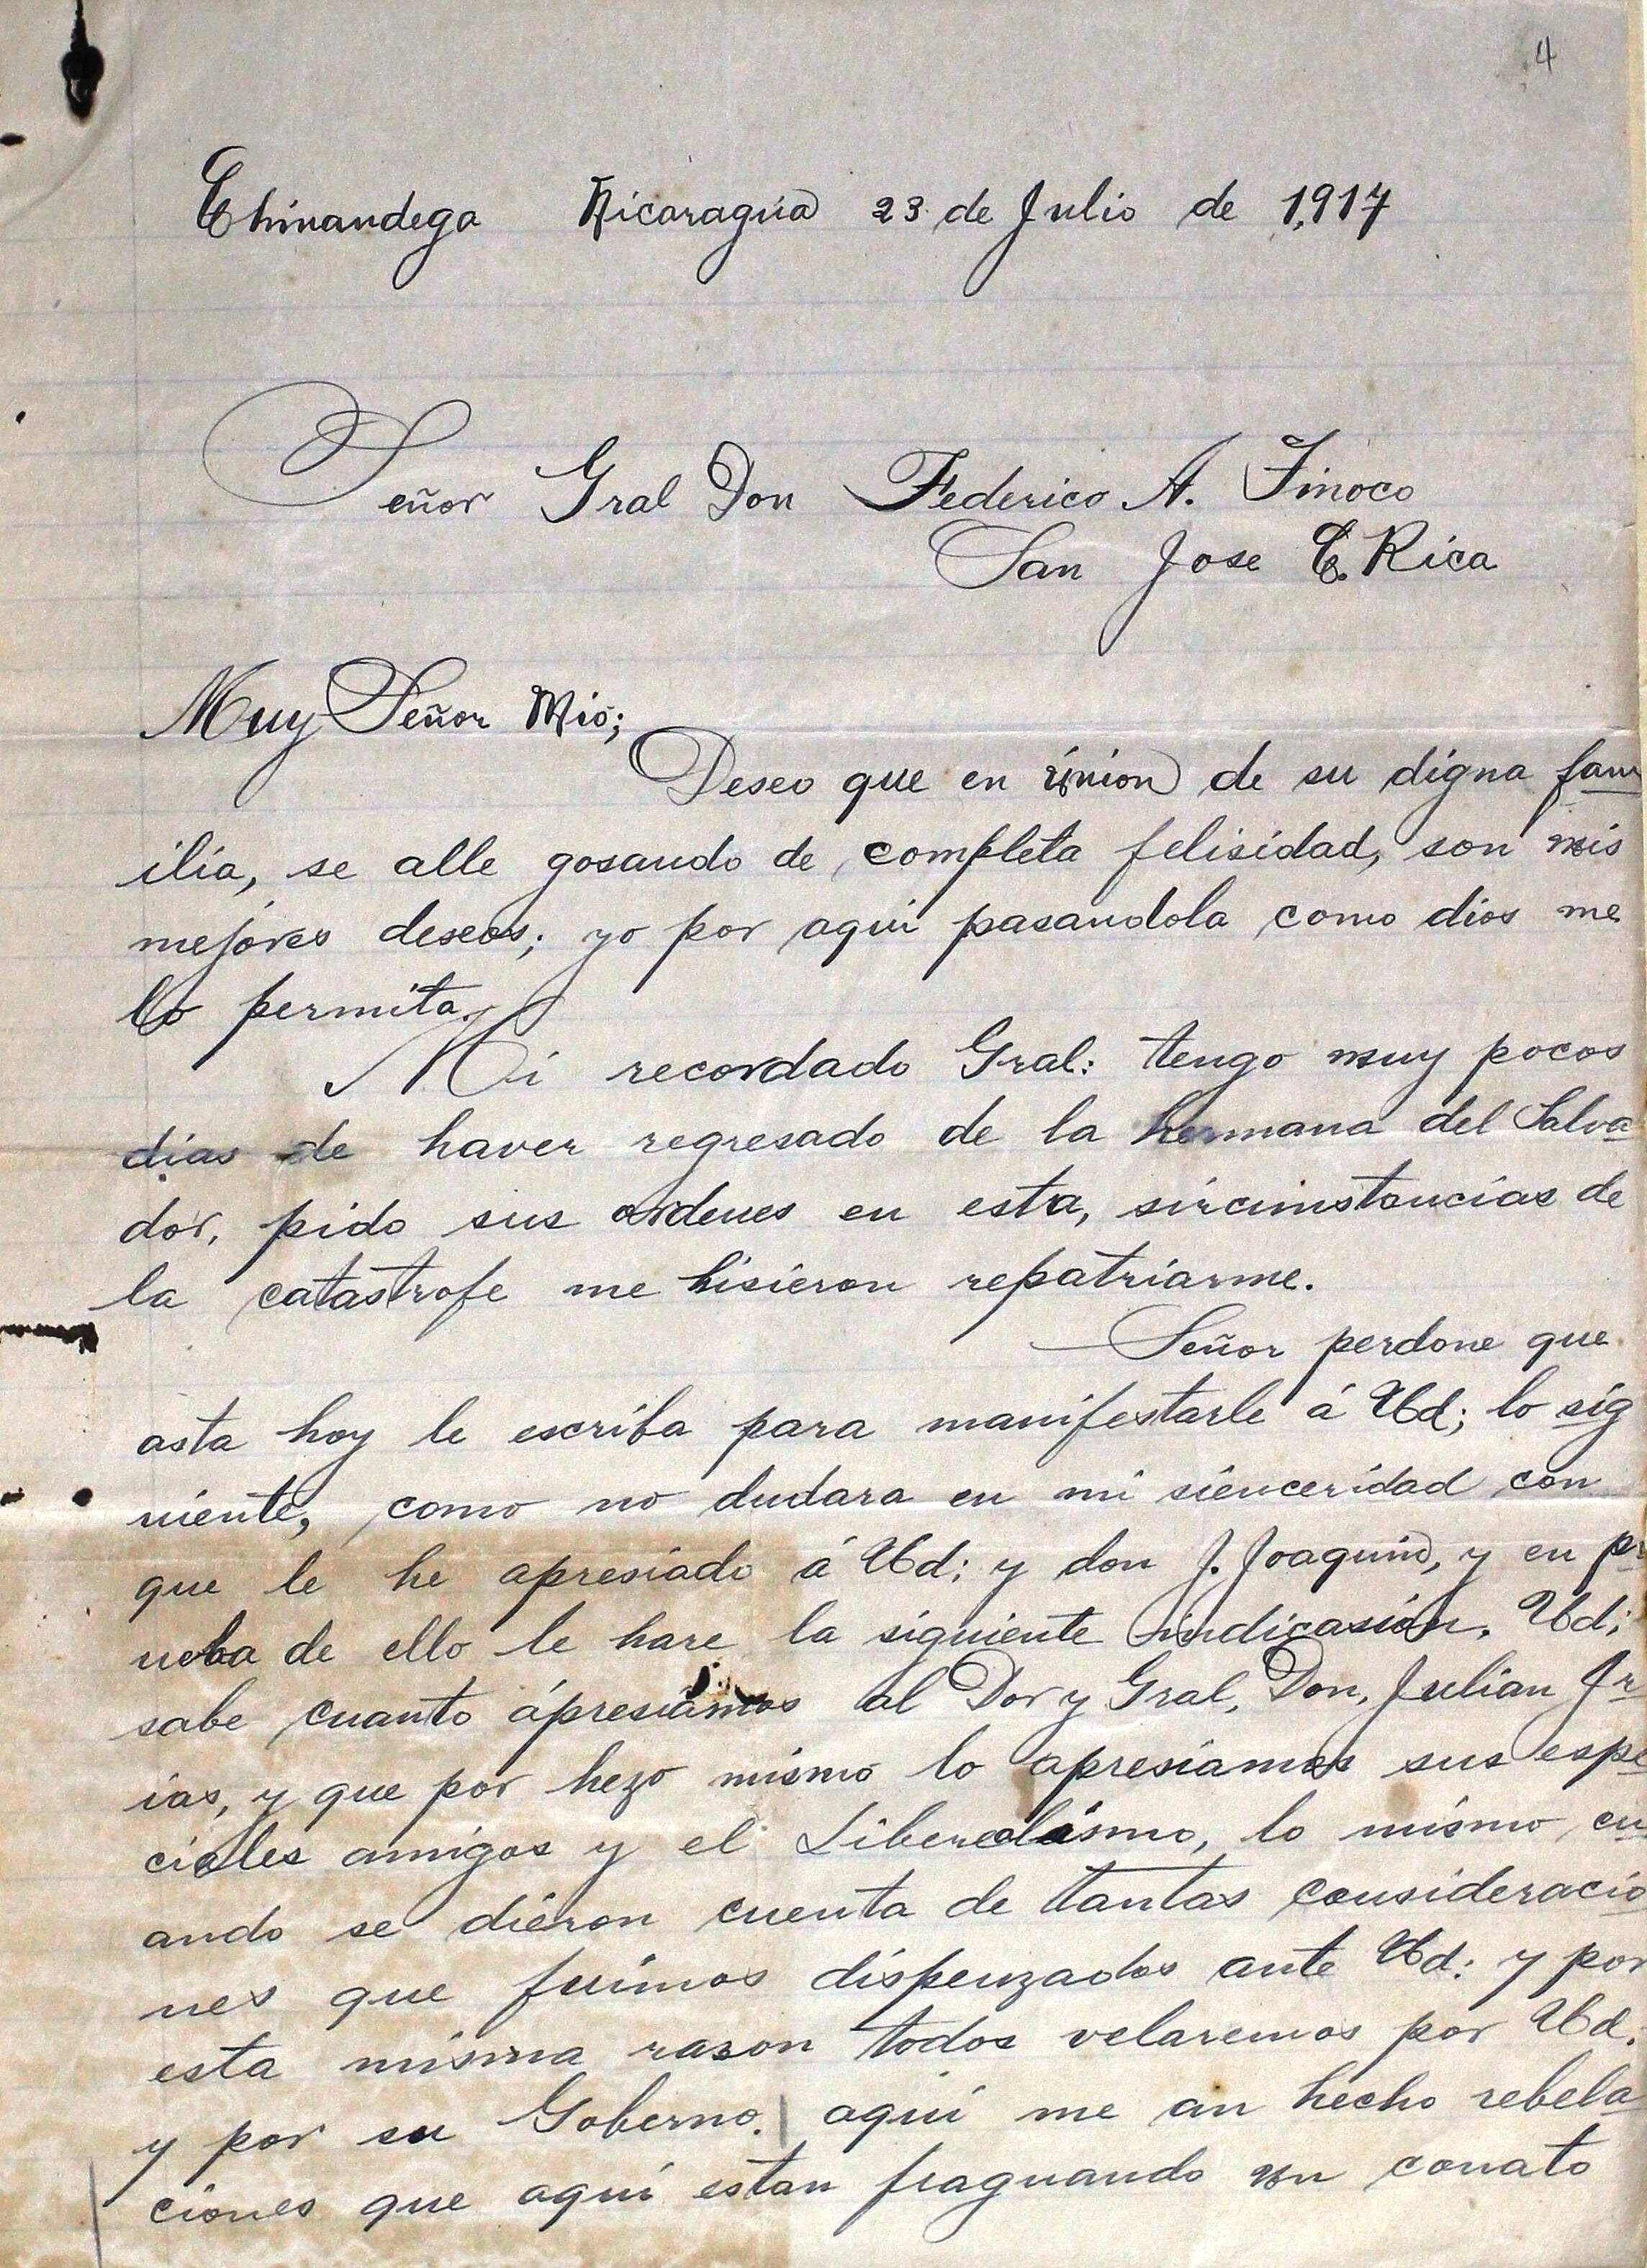 4
Chinandega Nicaragua 23 de Julio de 1,917
Señor Gral Don Federico A. Tinoco
San Jose C. Rica
Muy Señor Mio;
Deseo que en union de su digna fam
ilia, se alle gosando de completa felisidad, son mis
mejores deseos; yo por aqui pasandola como dios me
lo permita.
Mi recordado Gral: tengo muy pocos
dias de haver regresado de la hermana del Salva
dor, pido sus ordenes en esta, sircunstancias de
la catastrofe me hisieron repatriarme.
Señor perdone que
asta hoy le escriba para manifestarle á Ud; lo sig
uiente, como no dudara en mi sienceridad con
que le he apresiado á Ud; y don J. Joaquin, y en pr
ueba de ello le hare la siguiente indicasión. Ud;
sabe cuanto ápresiamos al Dor y Gral, Don, Julian Ir
ias, y que por hezo mismo lo apresiamos sus espe
ciales amigos y el Liberalismo, lo mismo cu
ando se dieron cuenta de tantas consideracio
nes que fuimos dispenzados ante Ud: y por
esta misma razon todos velaremos por Ud.
y por su Goberno. aqui me an hecho rebela
ciones que aqui estan fraguando un conato